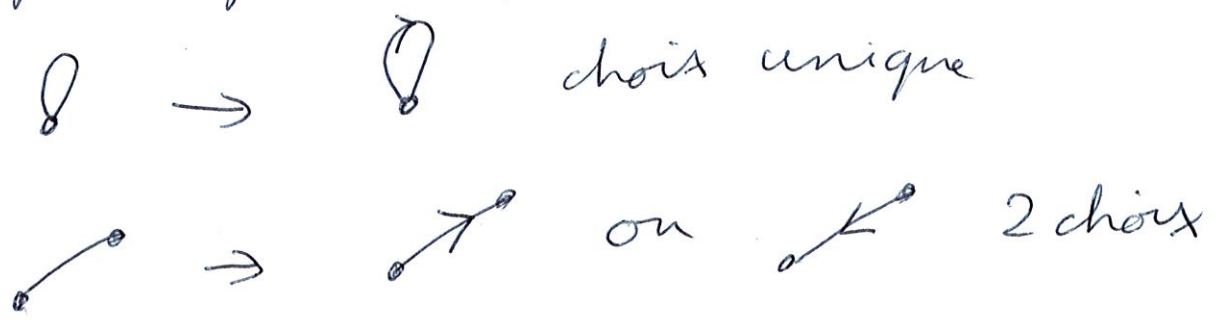 choix unique
ou 2 choix